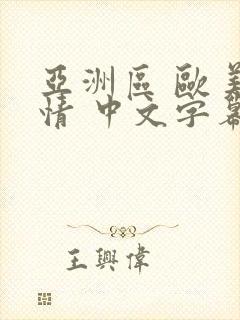 亞洲區 歐美
情 中文字幕
王興偉